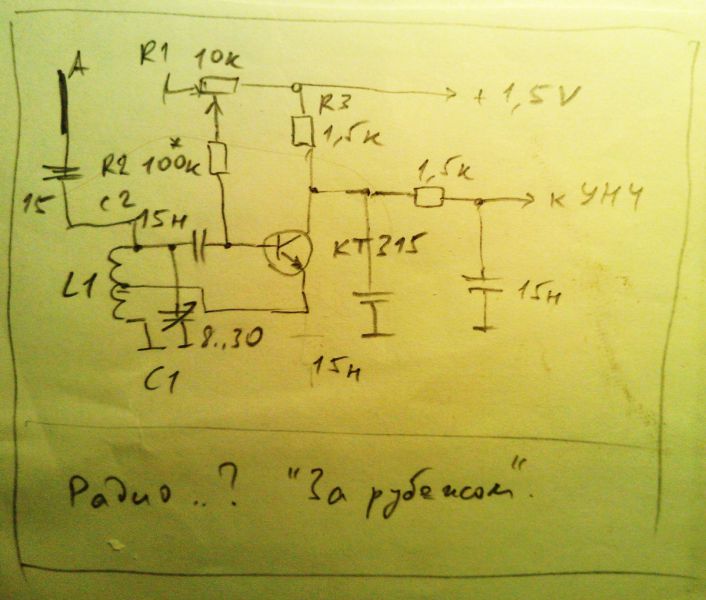 A
R1 10к
+ 1,5V
R3
1,5к
R2 100к*
1,5к
15
C2
15н
к УНЧ
КТ315
L1
15н
8..30
15н
C1
Радио ..? "За рубежом".